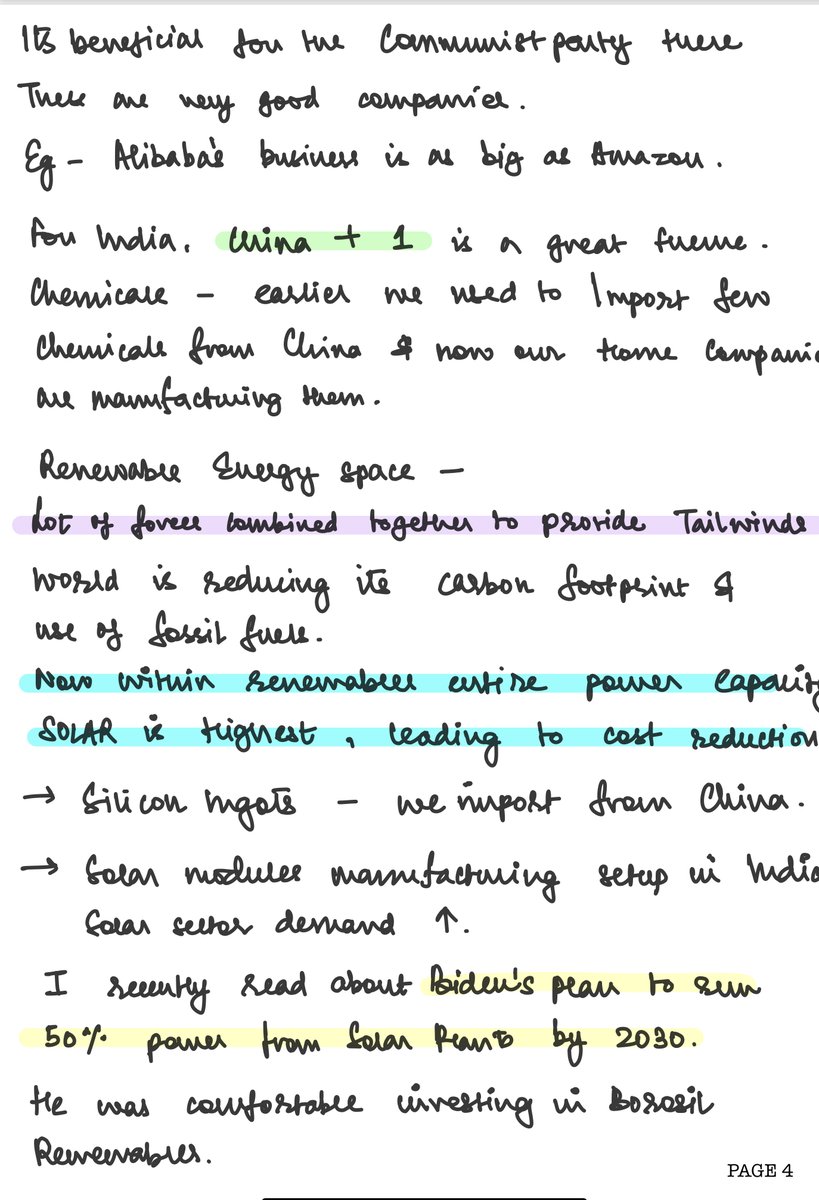 Its beneficial for the Communist party there
There are very good companies.
Eg - Alibaba's business is as big as Amazon.
For India, China + 1 is a great theme.
Chemicals - earlier we used to Import few
chemicals from China & now our Home Companie
are manufacturing them.
Renewable Energy space -
Lot of forces combined together to provide Tailwinds
World is reducing its carbon footprint &
use of fossil fuels.
Now within renewables entire power capacity
SOLAR is Highest, leading to cost reduction
→ Silicon Ingots - we import from China.
→ Solar modules manufacturing setup in India
Solar sector demand ↑.
I recently read about Biden's plan to run
50% power from Solar Plants by 2030.
He was comfortable investing in Borosil
Renewables.
PAGE 4